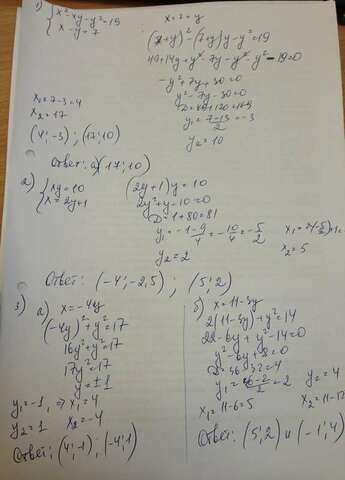 1) { x² - xy - y² = 19
x - y = 7
x = 7 + y
(7+y)² - (7+y)y - y² = 19
49 + 14y + y² - 7y - y² - y² - 19 = 0
-y² + 7y + 30 = 0
y² - 7y - 30 = 0
D = 49 + 120 = 169
y₁ = (7-13)/2 = -3
y₂ = 10
x₁ = 7-3 = 4
x₂ = 17
(4; -3); (17; 10)
Ответ: (17; 10)
2) { xy = 10
x = 2y+1
(2y+1)y = 10
2y² + y - 10 = 0
D = 1 + 80 = 81
y₁ = (-1-9)/4 = -10/4 = -5/2
y₂ = 2
x₂ = 5
Ответ: (-4; -2,5); (5; 2)
3) а) x = -4y
(-4y)² + y² = 17
16y² + y² = 17
17y² = 17
y = ±1
y₁ = -1, ⇒ x₁ = 4
y₂ = 1 x₂ = -4
Ответ: (4; -1); (-4; 1)
б) x = 11-3y
2(11-3y) + y² = 14
22 - 6y + y² - 14 = 0
y² - 6y + 8 = 0
D = 36 - 32 = 4
y₁ = (6-2)/2 = 2 y₂ = 4
x₁ = 11-6 = 5 x₂ = 11-12
Ответ: (5; 2) и (-1; 4)